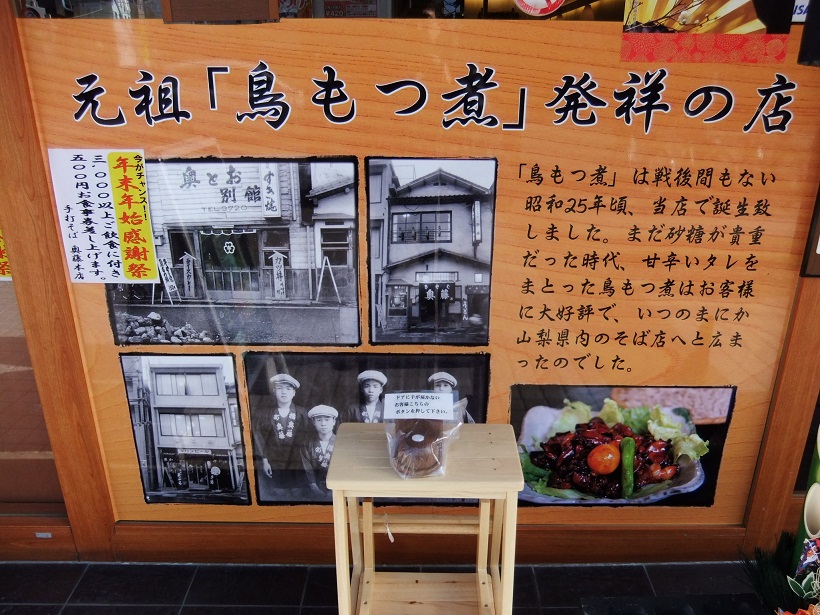 元祖「鳥もつ煮」発祥の店
今がチャンス!!
年末年始感謝祭
三、〇〇〇以上ご飲食に付き
五〇〇円お食事券差し上げます。
手打そば 奥藤本店
「鳥もつ煮」は戦後間もない
昭和25年頃、当店で誕生致
しました。まだ砂糖が貴重
だった時代、甘辛いタレを
まとった鳥もつ煮はお客様
に大好評で、いつのまにか
山梨県内のそば店へと広ま
ったのでした。
奥とお別館
すき焼
TEL 9720
奥藤
ドアに手が届かない
お客様こちらの
ボタンを押して下さい。